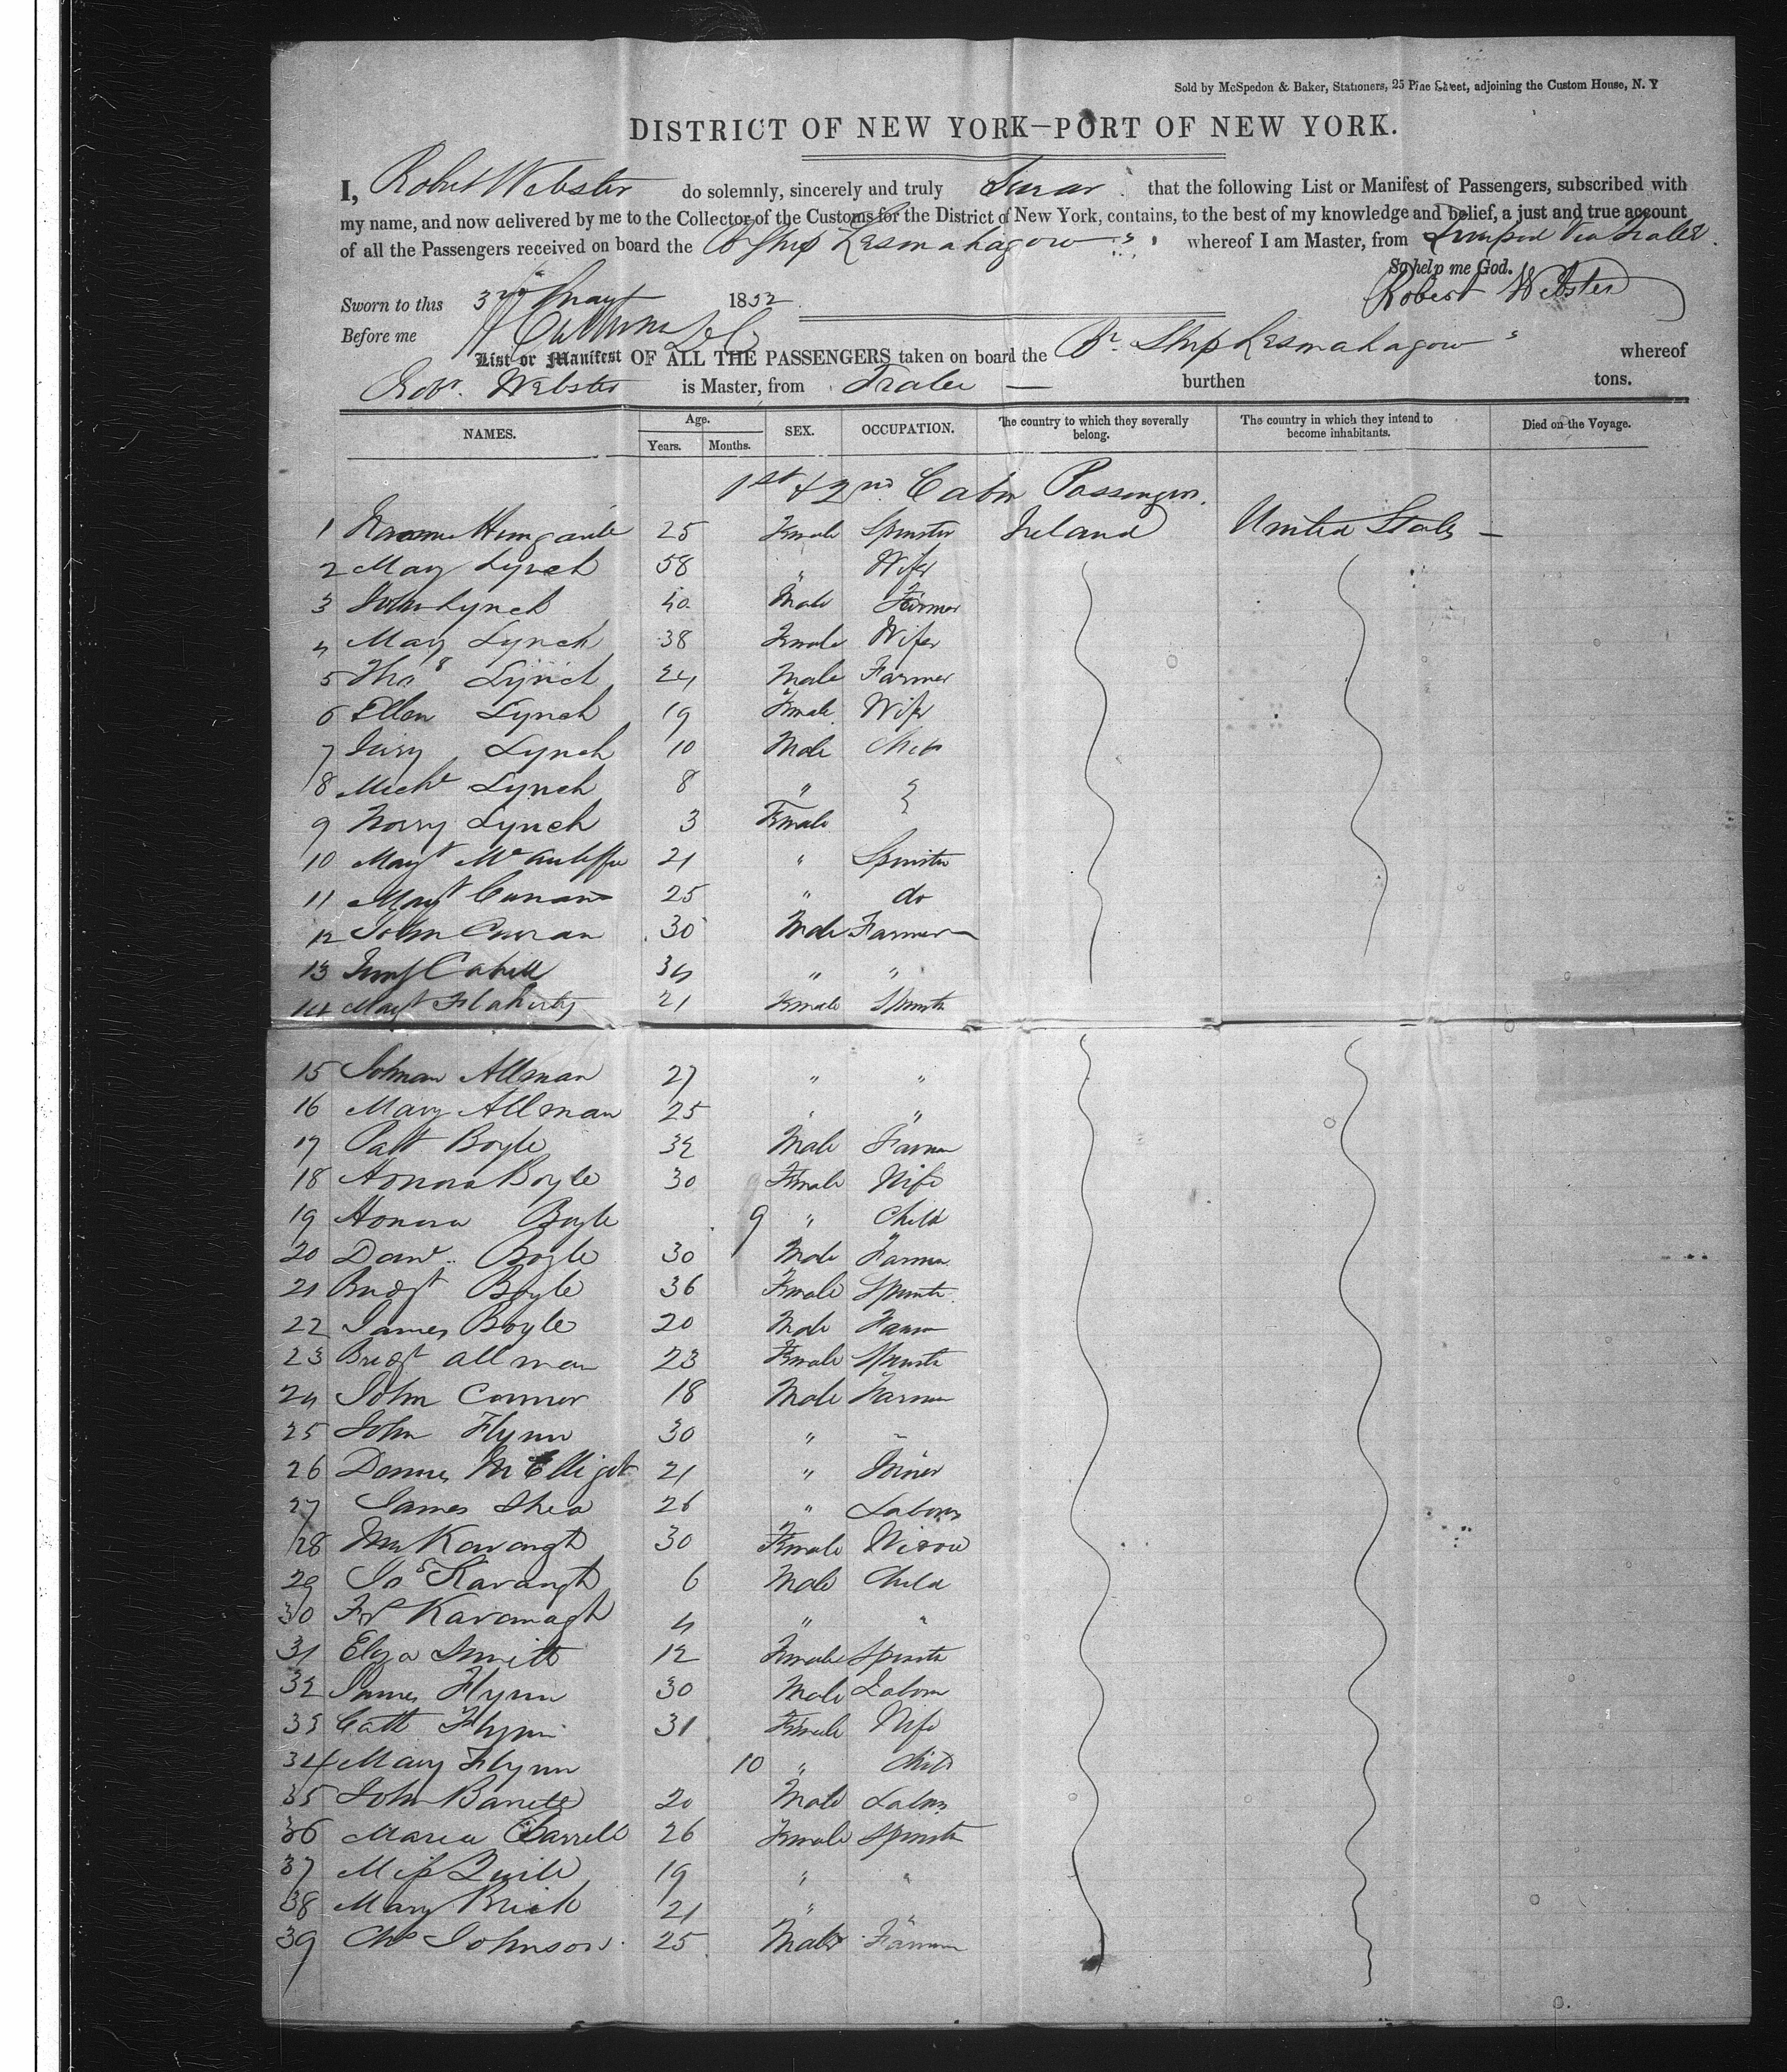 Sold by McSpedon & Baker, Stationers, 25 Pine Street, adjoining the Custom House, N. Y
DISTRICT OF NEW YORK—PORT OF NEW YORK.
I, Robert Webster do solemnly, sincerely and truly Swear that the following List or Manifest of Passengers, subscribed with
my name, and now delivered by me to the Collector of the Customs for the District of New York, contains, to the best of my knowledge and belief, a just and true account
of all the Passengers received on board the Br Ship Lesmahagow whereof I am Master, from Limerick Via Tralee.
So help me God.
Sworn to this 3rd May 1852 Robert Webster
Before me
List or Manifest OF ALL THE PASSENGERS taken on board the Br. Ship Lesmahagow whereof
Robt. Webster is Master, from Tralee — burthen tons.
NAMES. Age. Years. Months. SEX. OCCUPATION. The country to which they severally belong. The country in which they intend to become inhabitants. Died on the Voyage.
1st & 2nd Cabin Passengers.
1 25 Female Spinster Ireland United States —
2 Mary Lynch 58 " Wife
3 John Lynch 40 Male Farmer
4 Mary Lynch 38 Female Wife
5 Thos Lynch 24 Male Farmer
6 Ellen Lynch 19 Female Wife
7 Lynch 10 Male Child
8 Michl Lynch 8 "
9 Norry Lynch 3 Female
10 Margt McAuliffe 21 " Spinster
11 Margt Curran 25 " do
12 John Curran 30 Male Farmer
13 Cahill 34 " "
14 Margt Flaherty 21 Female Spinster
15 Johnan Allman 27 " "
16 Mary Allman 25 " "
17 Patt Boyle 32 Male Farmer
18 Honora Boyle 30 Female Wife
19 Honora Boyle 9 " Child
20 Danl. Boyle 30 Male Farmer
21 Bridgt Boyle 36 Female Spinster
22 James Boyle 20 Male Farmer
23 Bridgt Allman 23 Female Spinster
24 John Connor 18 Male Farmer
25 John Flynn 30 " "
26 Dennis McElligott 21 " Joiner
27 James Shea 26 " Laborer
28 Mrs Kavangh 30 Female Widow
29 Jos Kavangh 6 Male Child
30 Kavanagh 4 " "
31 Eliza Smith 12 Female Spinster
32 James Flynn 30 Male Laborer
33 Cath Flynn 31 Female Wife
34 Mary Flynn 10 " Child
35 John Barrett 20 Male Laborer
36 Maria Barrett 26 Female Spinster
37 Miss Quill 19 " "
38 Mary Brick 21 " "
39 Chs Johnson 25 Male Farmer